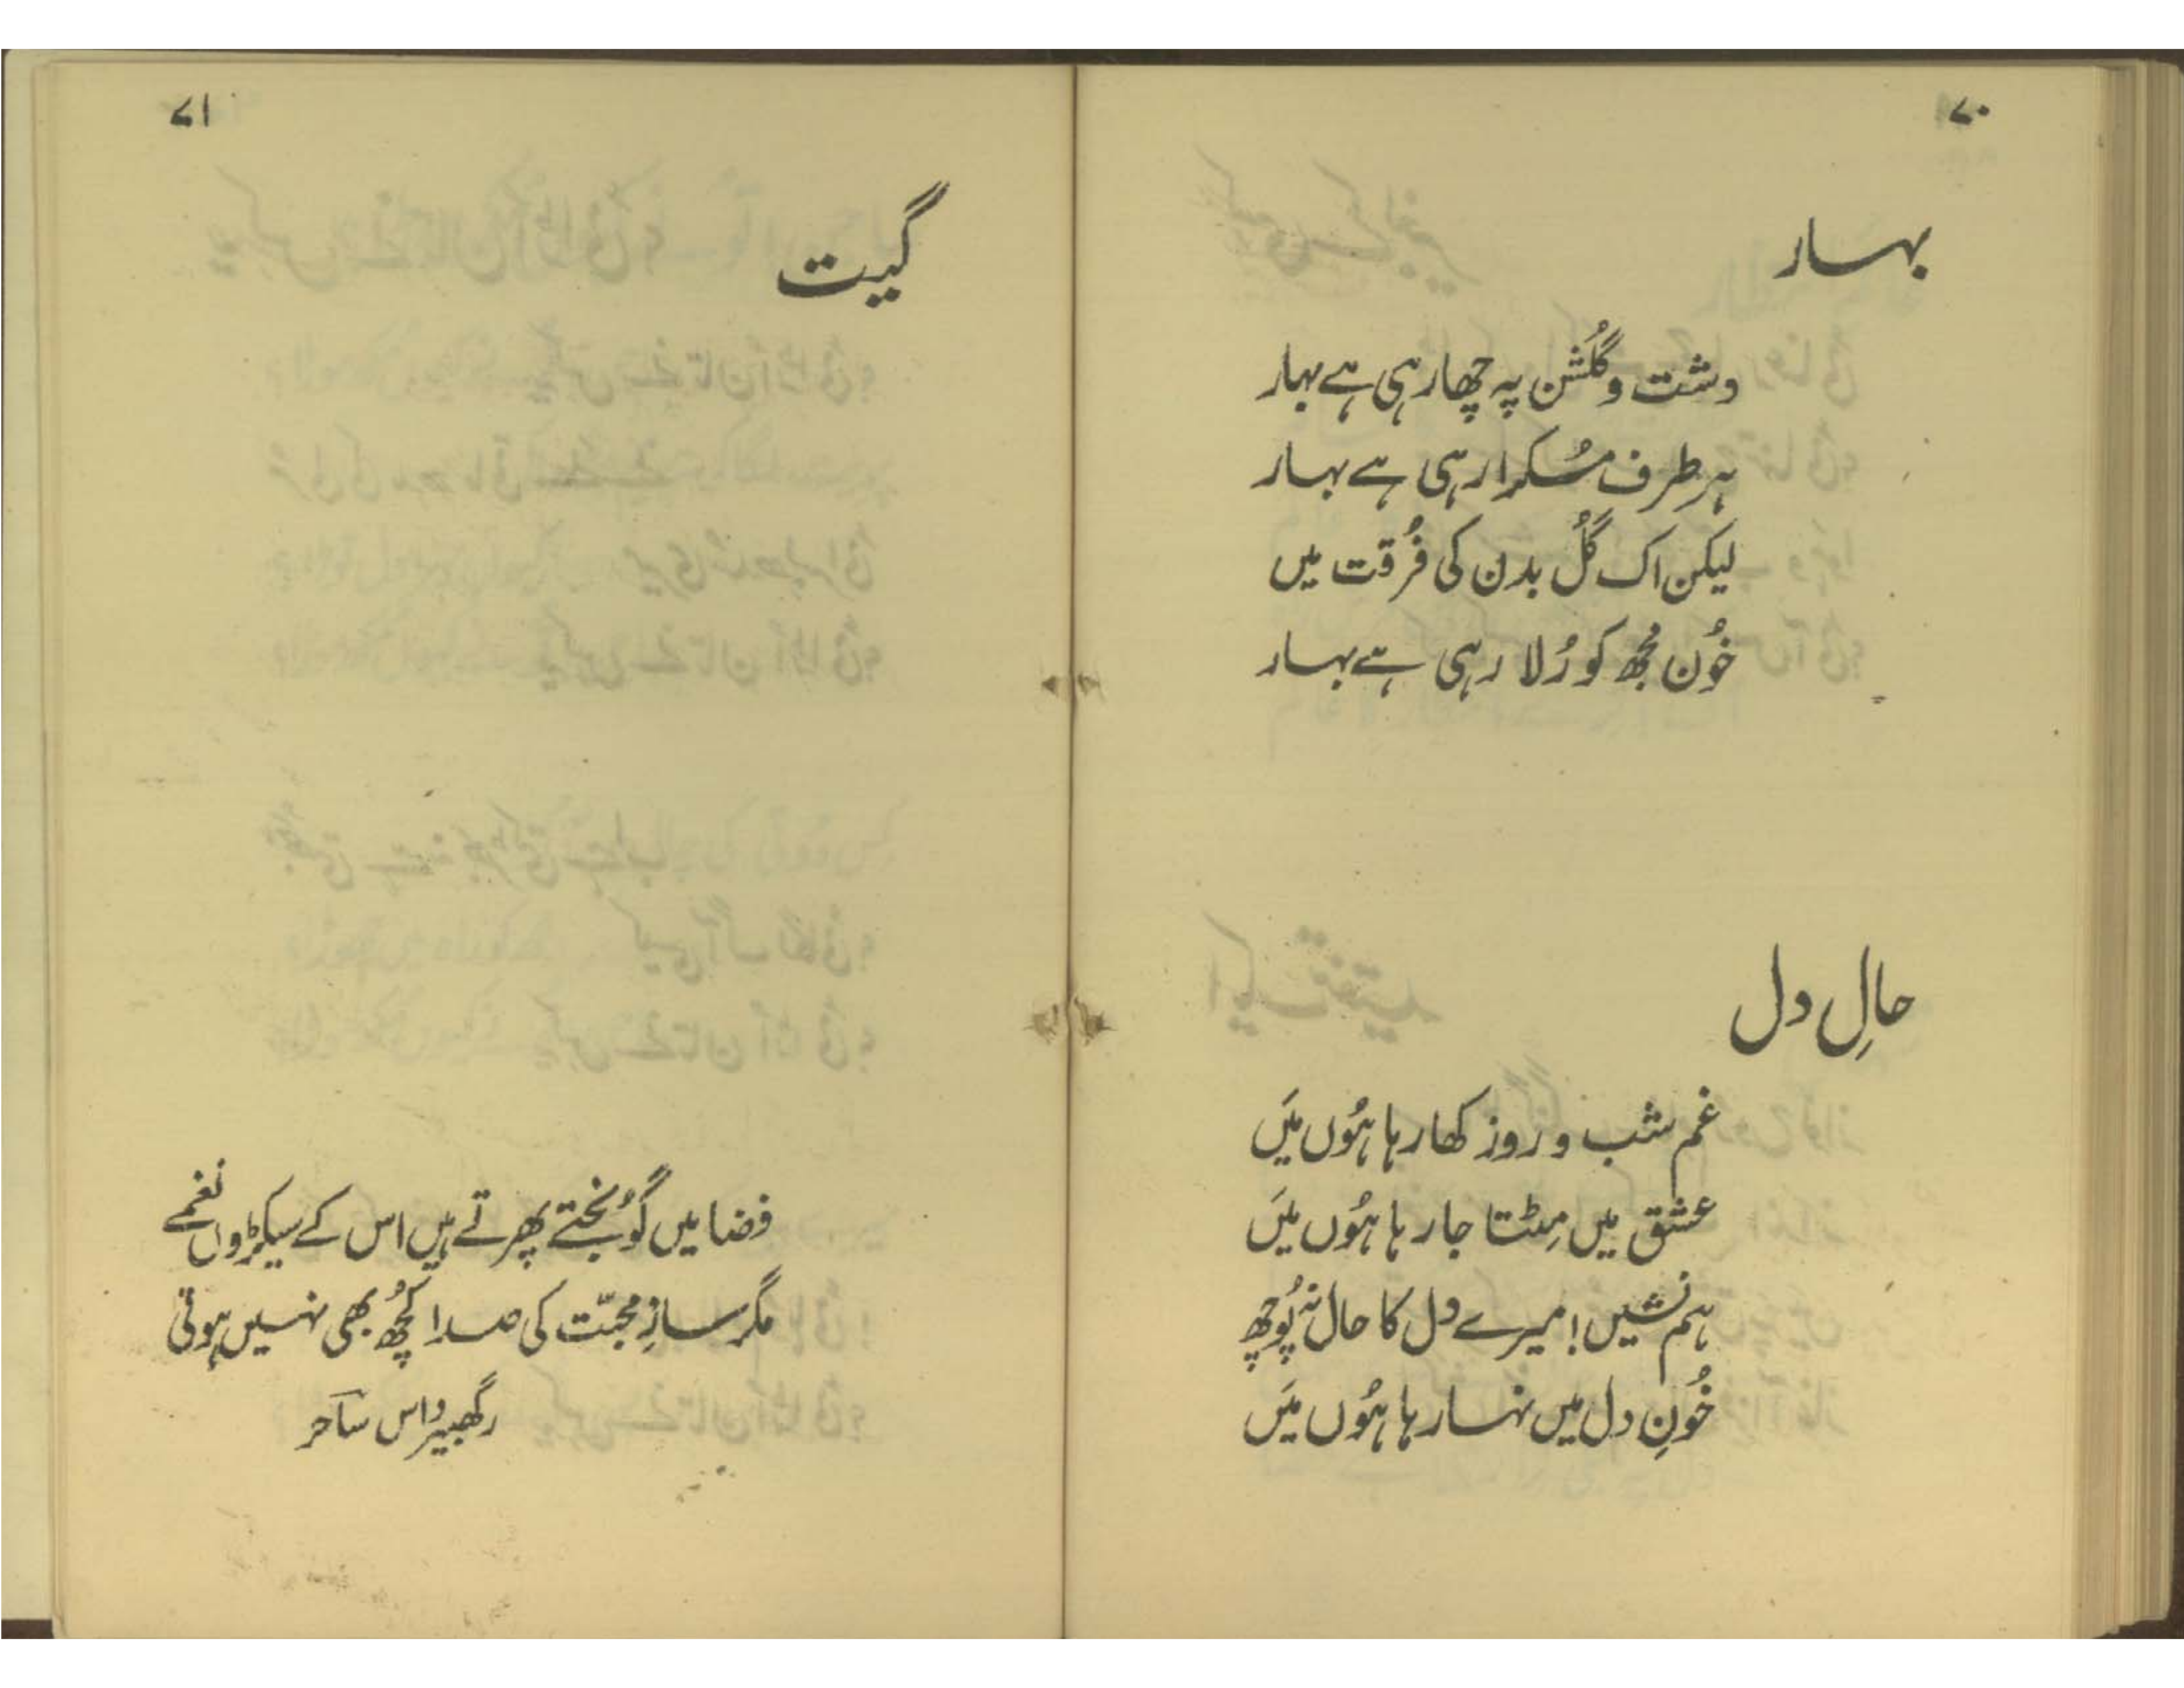 ۷۰
بہار
دشت و گُلشن پہ چھا رہی ہے بہار
ہر طرف مُسکرا رہی ہے بہار
لیکن اک گُل بدن کی فُرقت میں
خُون مُجھ کو رُلا رہی ہے بہار
حالِ دل
غم شب و روز کھا رہا ہُوں مَیں
عشق میں مِٹتا جا رہا ہُوں مَیں
ہم نشیں! میرے دل کا حال نہ پُوچھ
خُونِ دل میں نہا رہا ہُوں مَیں
۷۱
گیت
فضا میں گُونجتے پھرتے ہیں اس کے سیکڑوں نغمے
مگر سازِ محبّت کی صدا کُچھ بھی نہیں ہوتی
رگھبیر داس ساحر